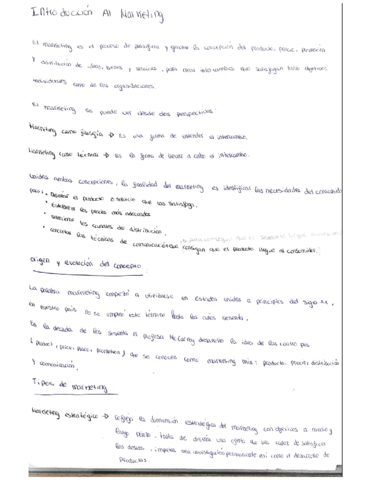 Introducción Al Marketing
El marketing es el proceso de planificar y ejecutar la concepción del producto, precio, promoción
Y distribución de ideas, bienes y servicios, para crear intercambios que satisfagan tanto objetivos
individuales como de las organizaciones.
El marketing se puede ver desde dos perspectivas:
Marketing como filosofía → Es una forma de entender el intercambio.
Marketing como técnica → Es la forma de llevar a cabo el intercambio.
Unidas ambas concepciones, la finalidad del marketing es identificar las necesidades del consumidor
para:
• Diseñar el producto o servicio que las satisfaga.
• Establecer los precios más adecuados
• seleccionar los canales de distribución
• concretar las técnicas de comunicación que consigan que el producto llegue al consumidor.
Origen y evolución del concepto
La palabra marketing empezó a utilizarse en estados unidos a principios del siglo XX,
en nuestro país no se empleó este término hasta los años sesenta.
En la década de los sesenta el profesor McCarthy desarrolló la idea de las cuatro pes
(product, price, place, promotion) que se conocen como marketing mix: producto, precio, distribución
Y comunicación.
Tipos de Marketing
Marketing estratégico → Refleja la dimensión estratégica del marketing con objetivos a medio y
largo plazo, trata de diseñar una oferta que sea capaz de satisfacer
los deseos, implica una investigación permanente así como el desarrollo de
Productos.